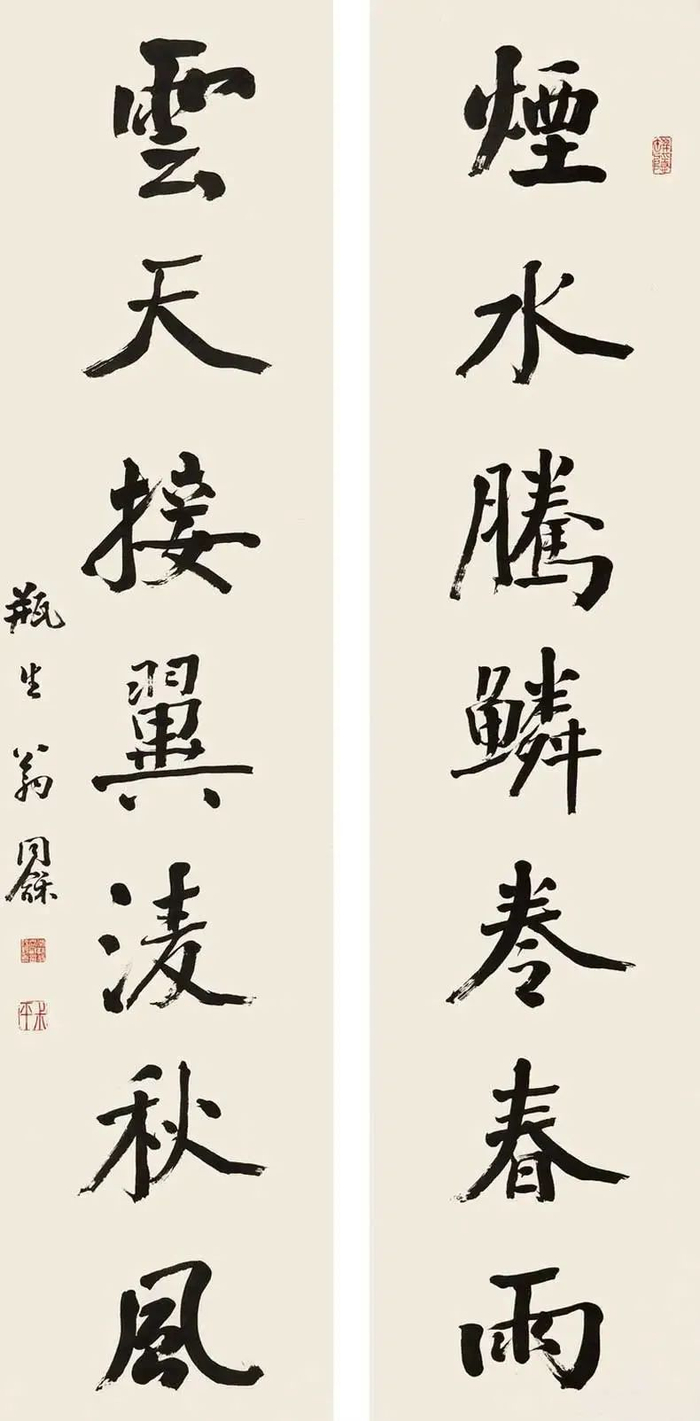 煙水騰鱗卷春雨
雲天接翼淩秋風
瓶生翁同龢